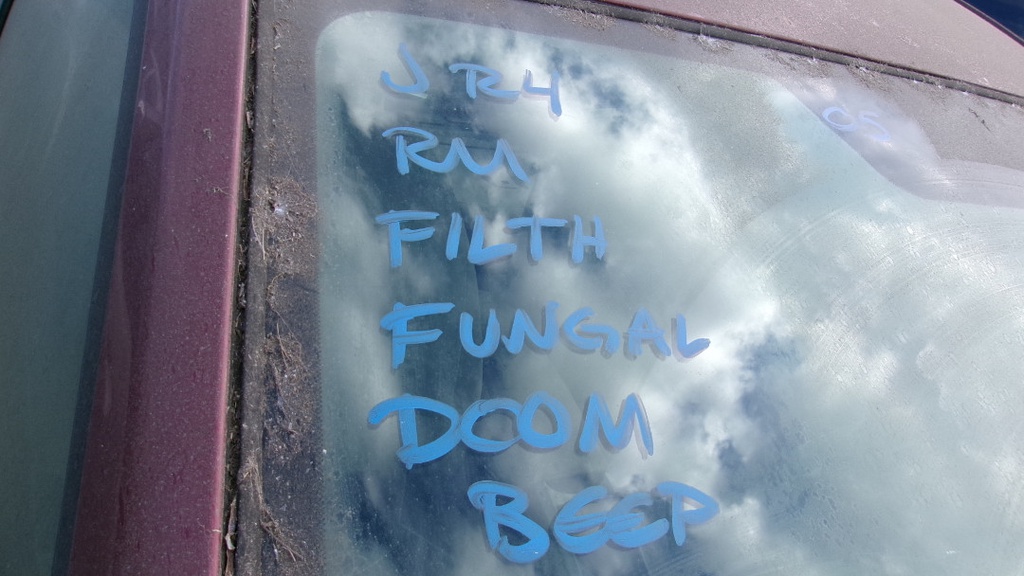 JR4
05
RM
FILTH
FUNGAL
DOOM
BEEP